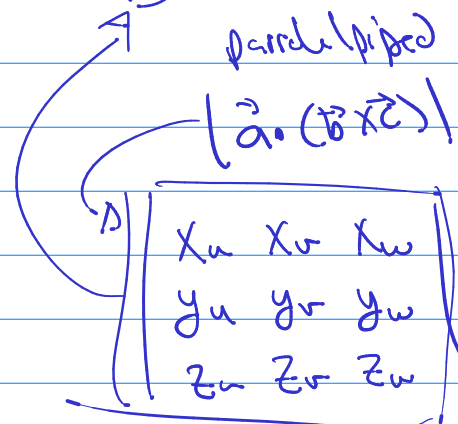 parallelpiped
|a⃗ • (b⃗ × c⃗)|
x_u x_v x_w
y_u y_v y_w
z_u z_v z_w